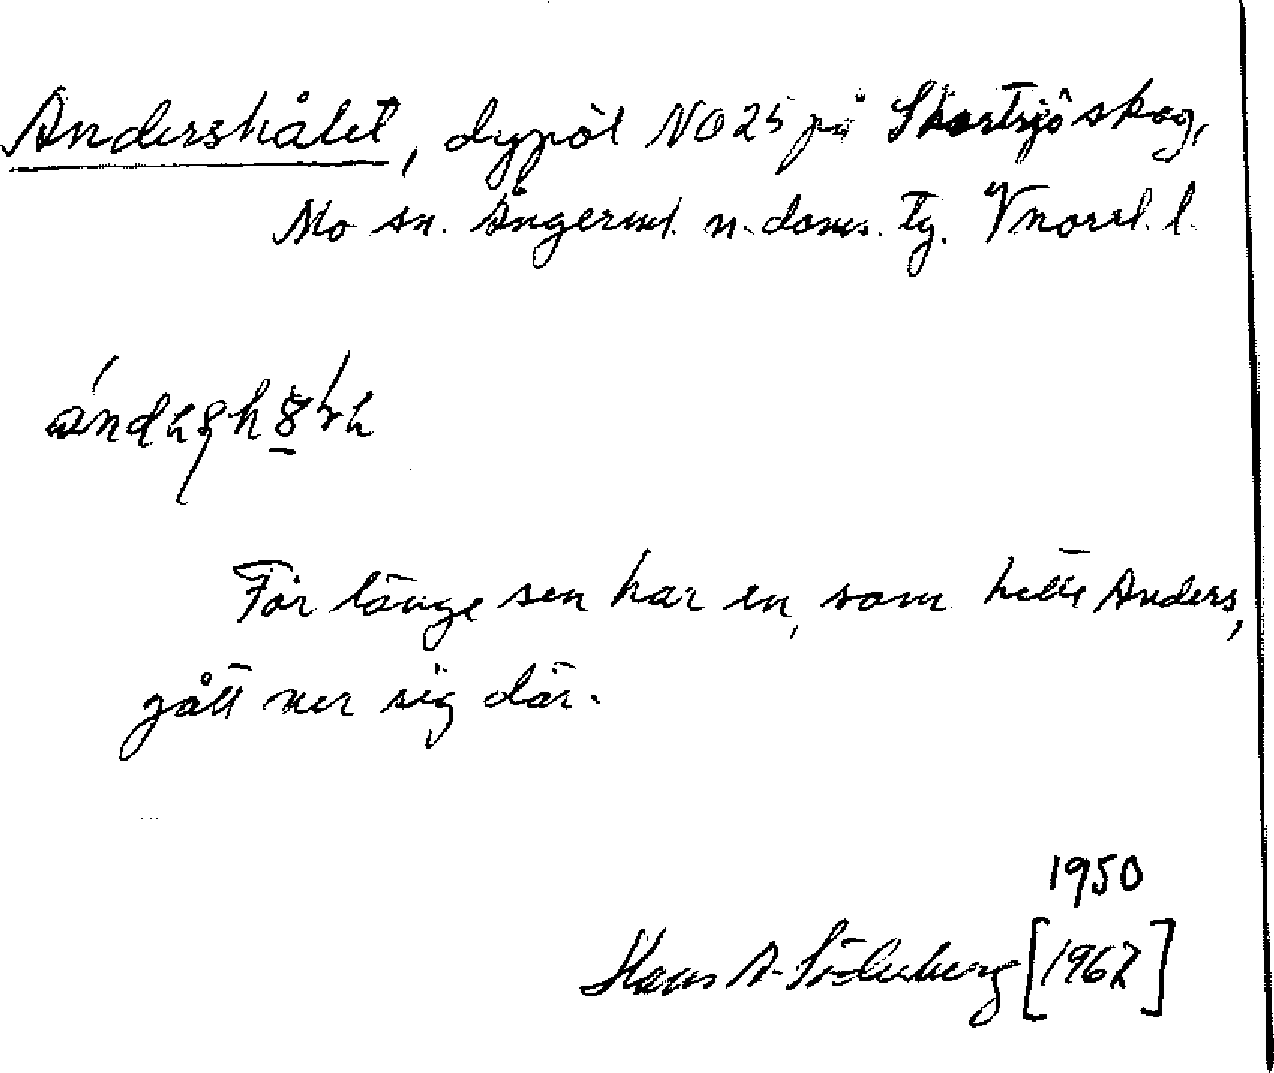 Andershålet, dypöl NO25 på Skortsjö skog,
Mo sn. Ångerml. n. doms. tg. Vnorrl. l.
För länge sen har en, som hette Anders,
gått ner sig där.
1950
Hans A. Söderberg [1962]